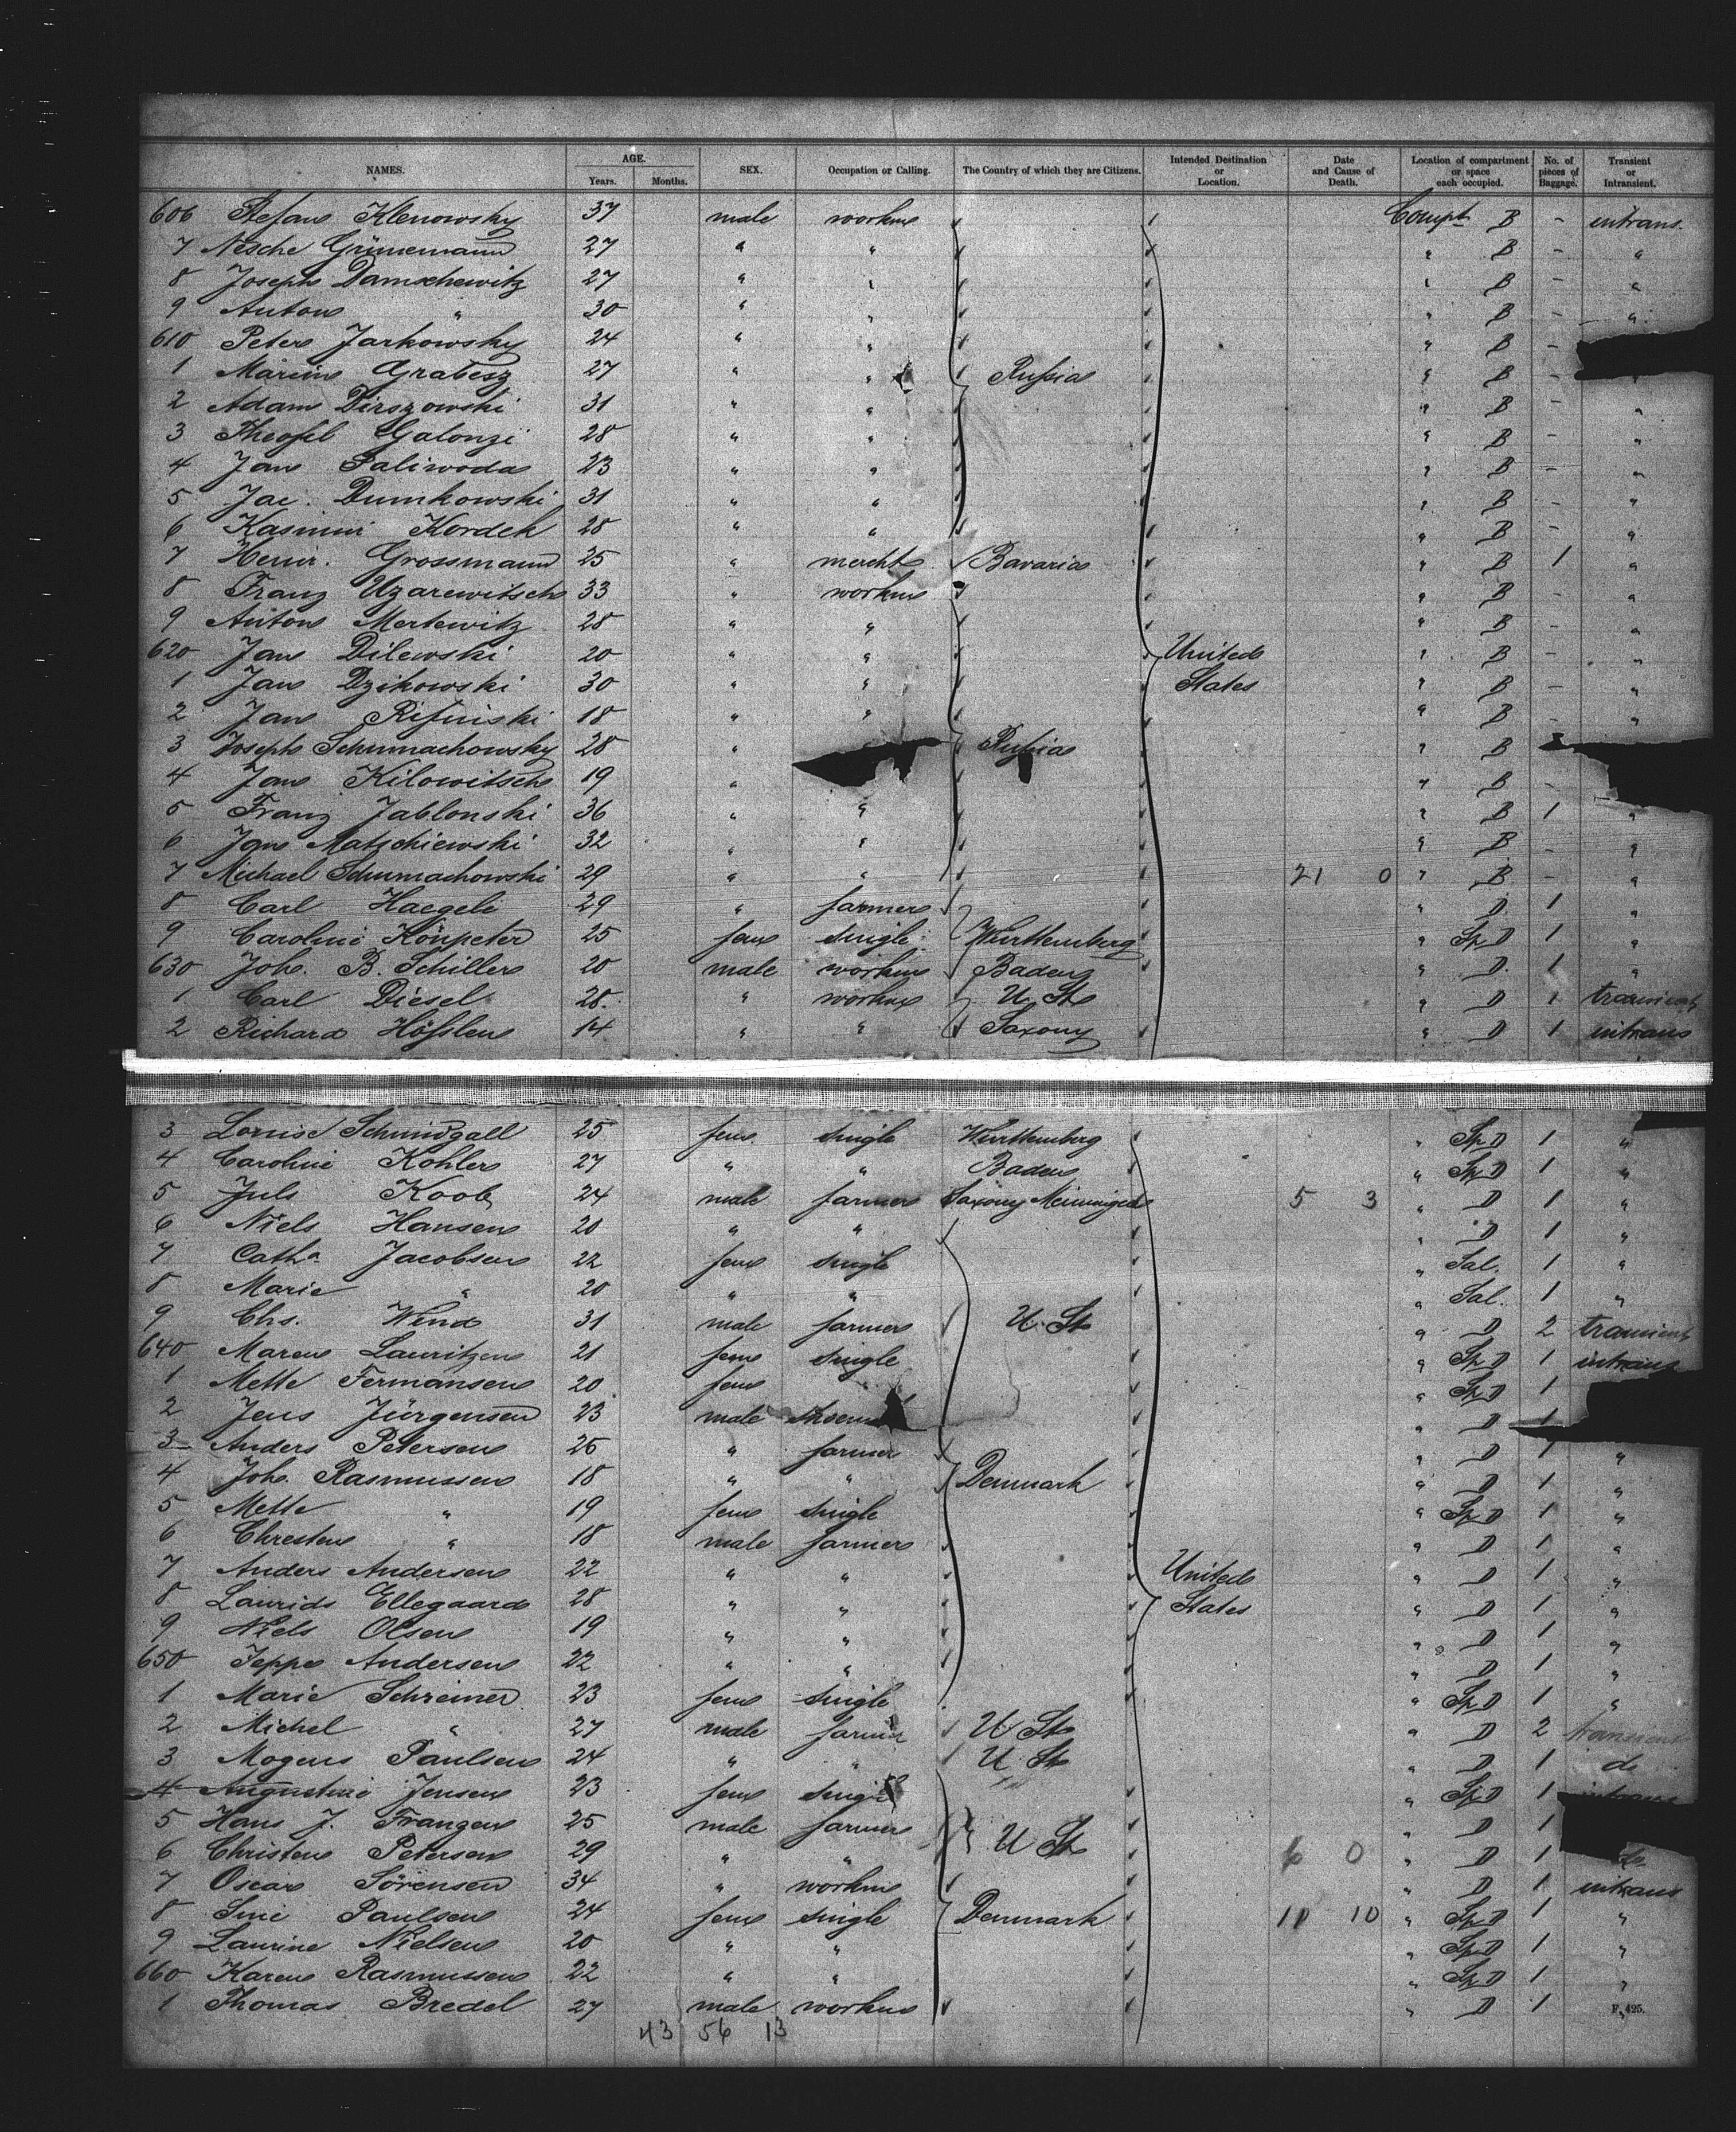 NAMES. AGE. Years. Months. SEX. Occupation or Calling. The Country of which they are Citizens. Intended Destination or Location. Date and Cause of Death. Location of compartment or space each occupied. No. of pieces of Baggage. Transient or Intransient.
606 Stefan Klenowsky 37 male workm Compt B - intrans.
7 Nesche Grünemann 27 " " " B - "
8 Joseph Damschewitz 27 " " " B - "
9 Anton " 30 " " " B - "
610 Peter Jarkowsky 24 " " " B -
1 Grabesz 27 " " Russia " B - "
2 Adam Dirszowski 31 " " " B - "
3 Theofil Galonzi 28 " " " B - "
4 Jan Paliwoda 23 " " " B - "
5 Jac. Dumkowski 31 " " " B - "
6 Kasimir Kordek 28 " " " B - "
7 Heinr. Grossmann 25 " mercht Bavaria " B 1 "
8 Franz Uzarewitsch 33 " workm " B - "
9 Anton Mertewitz 28 " " " B - "
620 Jan Dilewski 20 " " United " B - "
1 Jan Dzikowski 30 " " States " B - "
2 Jan 18 " " " B - "
3 Joseph Schumachowsky 28 " Russia " B
4 Jan Kilowitsch 19 " " B -
5 Franz Jablonski 36 " " " B 1 "
6 Jan Matschiewski 32 " " " B - "
7 Michael Schumachowski 29 " " 21 0 " B - "
8 Carl Haegele 29 " farmer " D 1 "
9 Caroline Könpeter 25 fem single Württemberg " Sp D 1 "
630 Joh. B. Schiller 20 male workm Baden " D. 1 "
1 Carl Diesel 28. " workm U St " D 1 transient
2 Richard Hösslen 14 " " Saxony " D 1 intrans
3 Louise Schmidgall 25 fem single Württemberg " Sp D 1 "
4 Caroline Kohler 27 " " Baden " Sp D 1 "
5 Juls Koob 24 male farmer Saxony Meiningen 5 3 " D 1 "
6 Niels Hansen 20 " " " D 1 "
7 Catha Jacobsen 22 fem single " Sal. 1 "
8 Marie " 20 " " " Sal. 1 "
9 Chs. Wind 31 male farmer U. St " D 2 transient
640 Maren Lauritzen 21 fem single " Sp D 1 intrans
1 Mette Fermansen 20 fem " Sp D 1
2 Jens Jürgensen 23 male " D 1
3 Anders Petersen 26 " farmer " D 1 "
4 Joh. Rasmussen 18 " " Denmark " D 1 "
5 Mette " 19 fem single " Sp D 1 "
6 Chresten " 18 male farmer " D 1 "
7 Anders Andersen 22 " " United " D 1 "
8 Laurids Ellegaard 28 " " States " D 1 "
9 Niels Olsen 19 " " " D 1 "
650 Jeppe Andersen 22 " " " D 1 "
1 Marie Schreiner 23 fem single " Sp D 1 "
2 Michel " 27 male farmer U St " D 2 transient
3 Mogens Paulsen 24 " " U St " D 1 do
4 Augustine Jensen 23 fem single " Sp D 1 intrans
5 Hans J. Franzen 25 male farmer U St " D 1
6 Christen Petersen 29 " " 6 0 " D 1 do
7 Oscar Sörensen 34 " workm " D 1 intrans
8 Sine Paulsen 24 fem single Denmark 11 10 " Sp D 1 "
9 Laurine Nielsen 20 " " " Sp D 1 "
660 Karen Rasmussen 22 " " " Sp D 1 "
1 Thomas Bredel 27 male workm " D 1 "
F. 425.
43 56 13